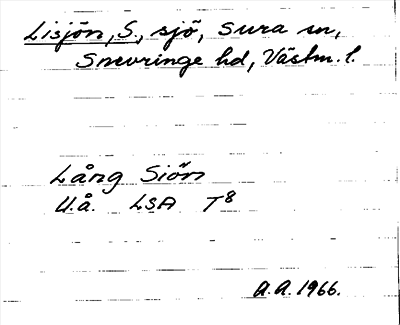 Lisjön, S., sjö, Sura sn,
Snevringe hd, Västm. l.
Lång Siön
U.å. LSA T8
A.A. 1966.